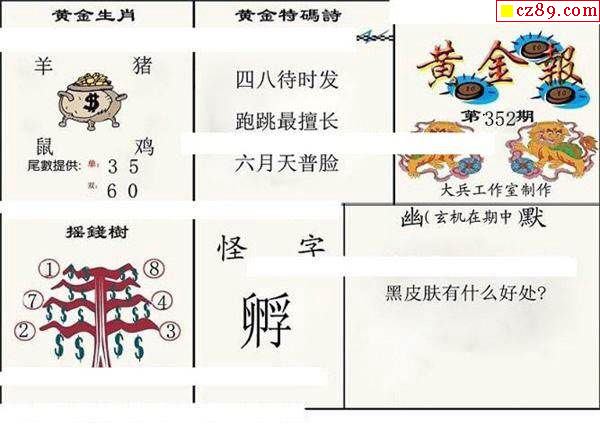 cz89.com
黄金生肖
羊 猪
$
鼠 鸡
尾數提供: 单: 3 5
双: 6 0
黄金特碼詩
四八待时发
跑跳最擅长
六月天普脸
黄金報
第352期
大兵工作室制作
摇錢樹
① ⑧
⑦ ④
② ③
怪 字
孵
幽(玄机在期中)默
黑皮肤有什么好处?